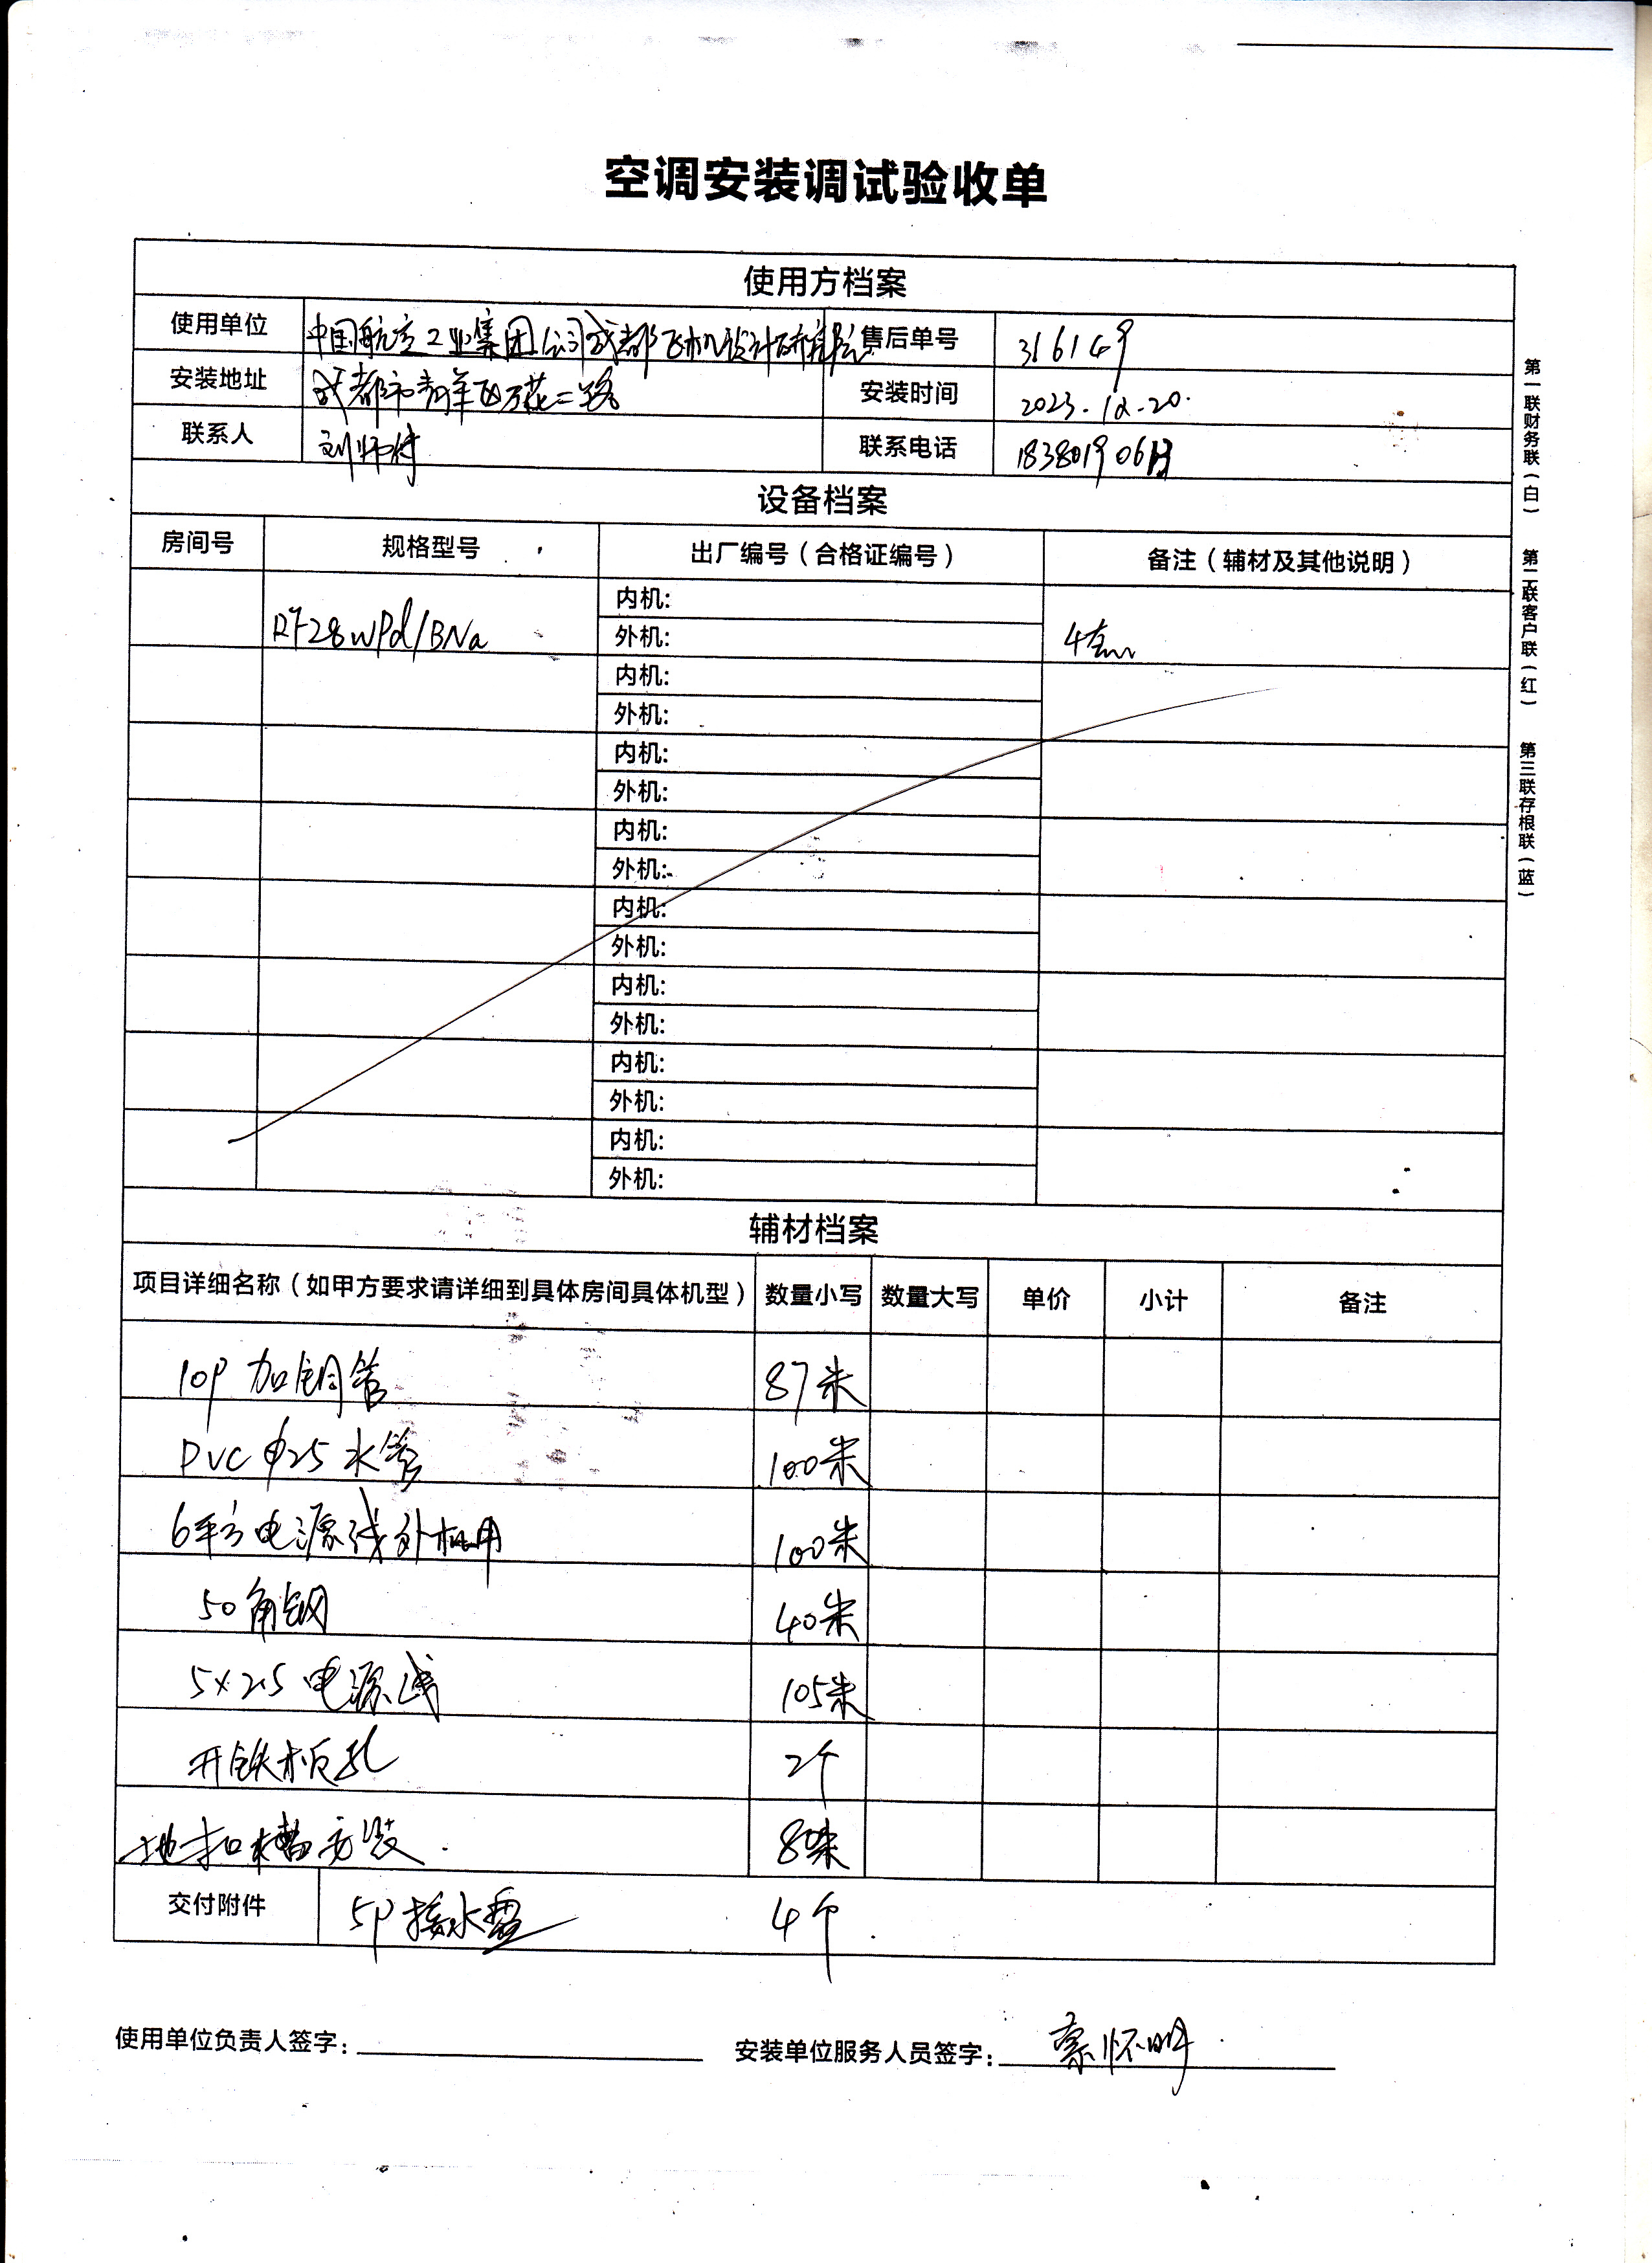 空调安装调试验收单
使用方档案
使用单位 中国航空工业集团公司成都飞机设计研究所 售后单号 316149
安装地址 成都市青羊区万花二路 安装时间 2023.12.20.
联系人 刘师付 联系电话 183801906
设备档案
房间号 规格型号 出厂编号（合格证编号） 备注（辅材及其他说明）
内机:
RF28WPd/BNa 外机: 4台
内机:
外机:
内机:
外机:
内机:
外机:
内机:
外机:
内机:
外机:
内机:
外机:
内机:
外机:
辅材档案
项目详细名称（如甲方要求请详细到具体房间具体机型） 数量小写 数量大写 单价 小计 备注
10P 加铜管 87米
PVC φ25 水管 100米
6平方电源线外机用 100米
50角钢 40米
5×2.5 电源线 105米
开铁板孔 2个
地扣槽安设 80米
交付附件 5P接水盘 4个
使用单位负责人签字: 安装单位服务人员签字: 怀明
第一联财务联（白） 第二联客户联（红） 第三联存根联（蓝）